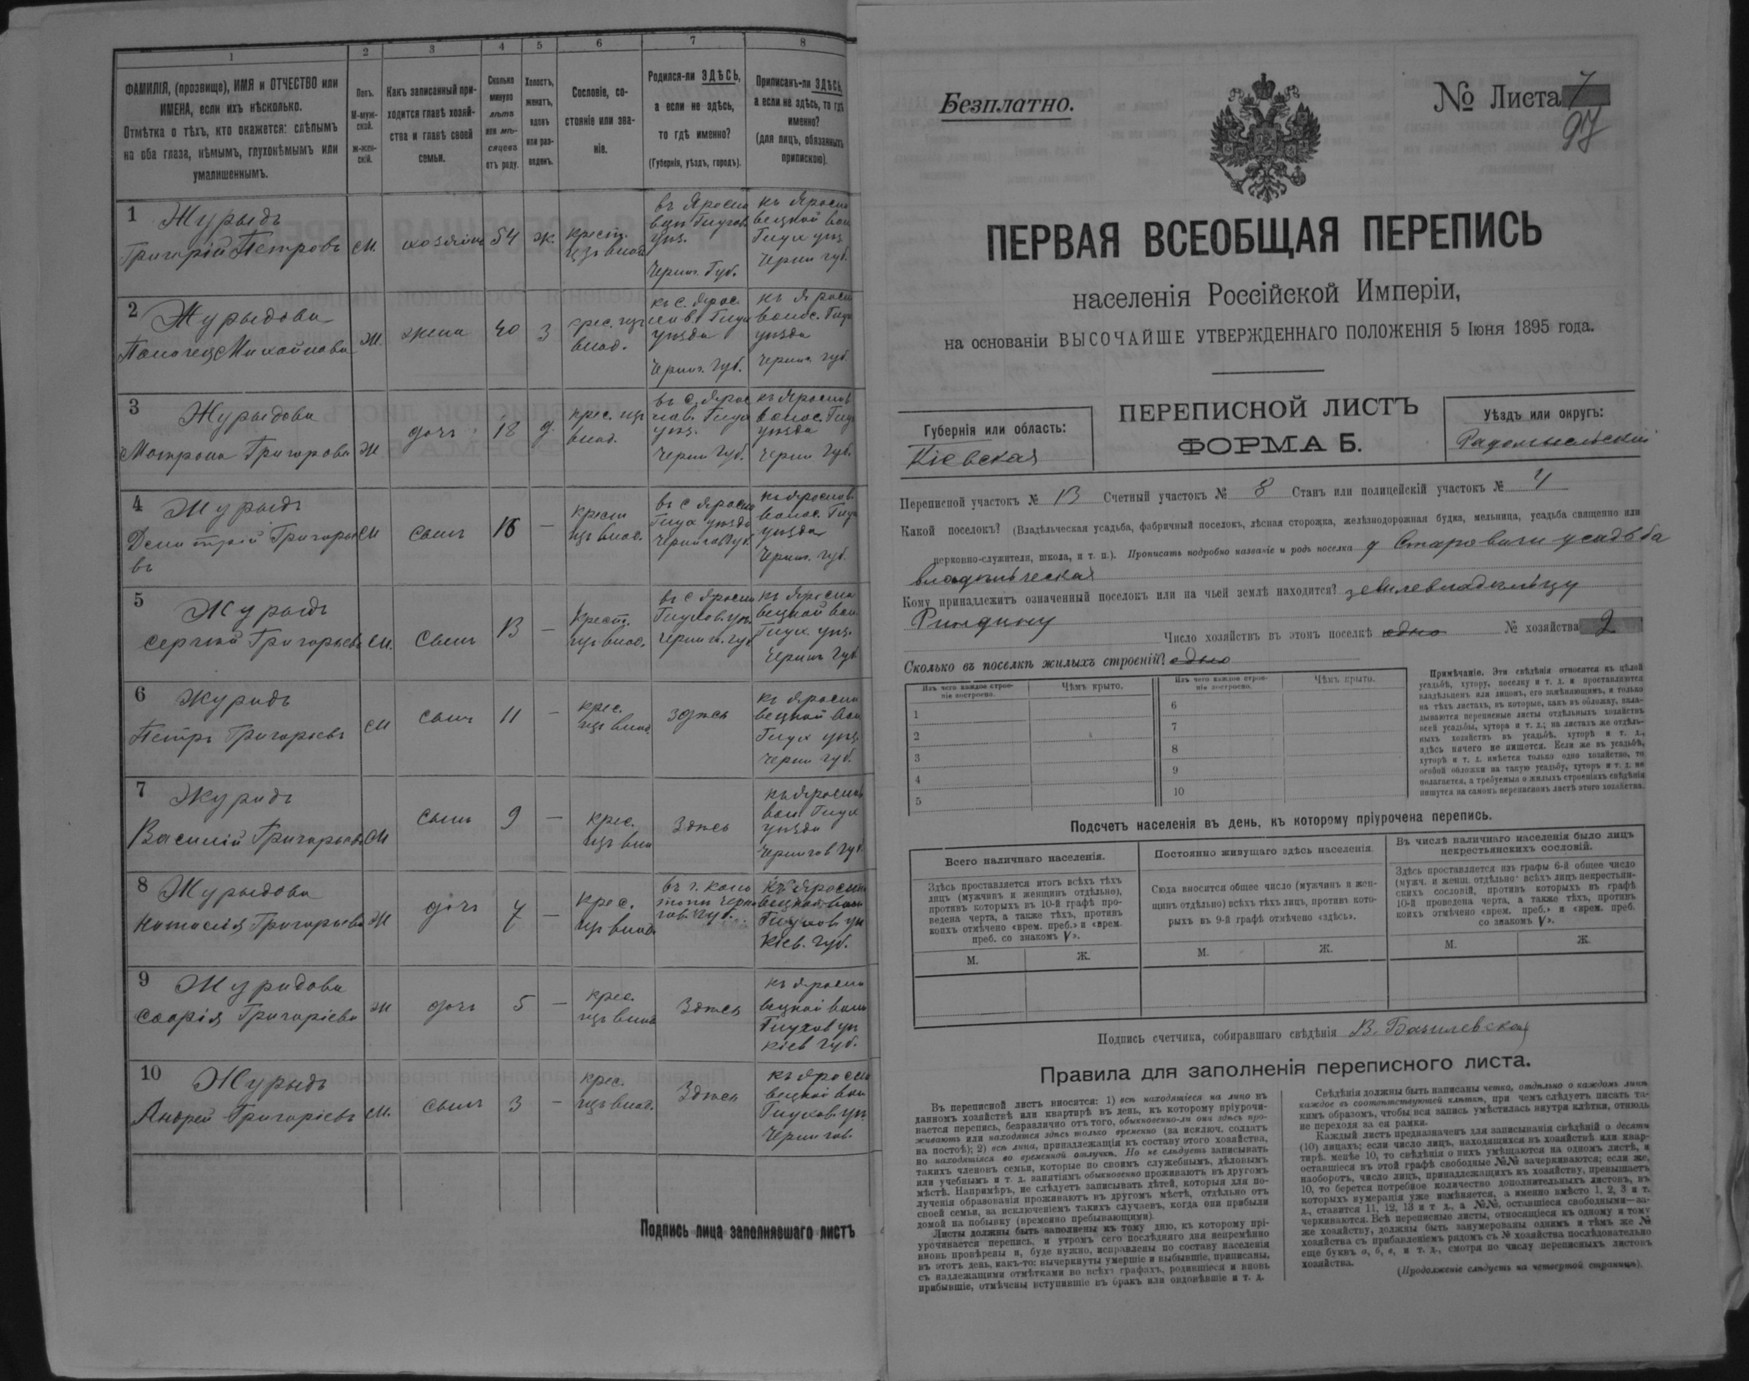 1
2
3
4
5
6
7
8
ФАМИЛІЯ, (прозвище), ИМЯ и ОТЧЕСТВО или
ИМЕНА, если ихъ нѣсколько.
Отмѣтка о тѣхъ, кто окажется: слѣпымъ
на оба глаза, нѣмымъ, глухонѣмымъ или
умалишеннымъ.
Полъ.
М-муж-
ской.
Ж-жен-
скій.
Какъ записанный при-
ходится главѣ хозяй-
ства и главѣ своей
семьи.
Сколько
минуло
лѣтъ
или мѣ-
сяцевъ
отъ роду.
Холостъ,
женатъ,
вдовъ
или раз-
веденъ.
Сословіе, со-
стояніе или зва-
ніе.
Родился-ли ЗДѢСЬ,
а если не здѣсь,
то гдѣ именно?
(Губернія, уѣздъ, городъ).
Приписанъ-ли ЗДѢСЬ,
а если не здѣсь, то гдѣ
именно?
(для лицъ, обязанныхъ
припискою).
1 Журыдъ
Григорій Петровъ
м.
хозяинъ
54
ж.
крест.
изъ влад.
Черниг. Губ.
2 Журыдова
Михайлова
ж.
жена
40
з
крес. изъ
влад.
уѣзда
Черниг. губ.
3 Журыдова
Матрона Григорова
ж
дочь
18
д.
крес. изъ
влад.
4 Журыдъ
Дмитрій Григорье
въ
м
сынъ
16
—
крест
изъ влад.
5 Журыдъ
Сергѣй Григорьевъ
м.
сынъ
13
—
Крест.
изъ влад.
6 Журидъ
Петръ Григорьевъ
м
сынъ
11
—
крес.
изъ влад
здѣсь
7 Журидъ
Василій Григорьевъ
м
сынъ
9
—
крес.
изъ вла
Здѣсь
8 Журыдова
Наталія Григорьева
ж
дочь
7
—
крес.
изъ влад.
Кіев. губ.
9 Журидова
Софія Григоріева
ж
дочь
5
—
крес.
изъ влад
Здѣсь
10 Журыдъ
Андрей Григоріевъ
м.
сынъ
3
—
крес.
изъ влад.
Здѣсь
Подпись лица заполнявшаго листъ
Безплатно.
№ Листа 7
97
ПЕРВАЯ ВСЕОБЩАЯ ПЕРЕПИСЬ
населенія Россійской Имперіи,
на основаніи ВЫСОЧАЙШЕ УТВЕРЖДЕННАГО ПОЛОЖЕНІЯ 5 Іюня 1895 года.
ПЕРЕПИСНОЙ ЛИСТЪ
ФОРМА Б.
Губернія или область:
Кіевская
Уѣздъ или округъ:
Радомысльскій
Переписной участокъ № 13 Счетный участокъ № 8 Станъ или полицейскій участокъ № 4
Какой поселокъ? (Владѣльческая усадьба, фабричный поселокъ, лѣсная сторожка, желѣзнодорожная будка, мельница, усадьба священно или
церковно-служителя, школа, и т. п.). Прописать подробно названіе и родъ поселка д Старовичи усадьба
владѣльческая
Кому принадлежитъ означенный поселокъ или на чьей землѣ находится? землевладѣльцу
Число хозяйствъ въ этомъ поселкѣ одно № хозяйства 2
Сколько въ поселкѣ жилыхъ строеній? одно
Изъ чего каждое строе-
ніе построено.
Чѣмъ крыто.
Изъ чего каждое строе-
ніе построено.
Чѣмъ крыто.
1
2
3
4
5
6
7
8
9
10
Примѣчаніе. Эти свѣдѣнія относятся къ цѣлой
усадьбѣ, хутору, поселку и т. д. и проставляются
владѣльцемъ или лицомъ, его замѣняющимъ, и только
на тѣхъ листахъ, въ которые, какъ въ обложку, вкла-
дываются переписные листы отдѣльныхъ хозяйствъ
всей усадьбы, хутора и т. д.; на листахъ же отдѣль-
ныхъ хозяйствъ въ усадьбѣ, хуторѣ и т. д.,
здѣсь ничего не пишется. Если же въ усадьбѣ,
хуторѣ и т. д. имѣется только одно хозяйство, то
особой обложки на такую усадьбу, хуторъ и т. д. не
полагается, а требуемыя о жилыхъ строеніяхъ свѣдѣнія
пишутся на самомъ переписномъ листѣ этого хозяйства.
Подсчетъ населенія въ день, къ которому пріурочена перепись.
Всего наличнаго населенія.
Здѣсь проставляется итогъ всѣхъ тѣхъ
лицъ (мужчинъ и женщинъ отдѣльно),
противъ которыхъ въ 10-й графѣ про-
ведена черта, а также тѣхъ, противъ
коихъ отмѣчено «врем. преб.» и «врем.
преб. со знакомъ V».
Постоянно живущаго здѣсь населенія.
Сюда вносится общее число (мужчинъ и жен-
щинъ отдѣльно) всѣхъ тѣхъ лицъ, противъ кото-
рыхъ въ 9-й графѣ отмѣчено «здѣсь».
Въ числѣ наличнаго населенія было лицъ
некрестьянскихъ сословій.
Здѣсь проставляется изъ графы 6-й общее число
(мужч. и женщ. отдѣльно) всѣхъ лицъ некрестьян-
скихъ сословій, противъ которыхъ въ графѣ
10-й проведена черта, а также тѣхъ, противъ
коихъ отмѣчено «врем. преб.» и «врем. преб.
со знакомъ V».
М.
Ж.
М.
Ж.
М.
Ж.
Подпись счетчика, собиравшаго свѣдѣнія
Правила для заполненія переписного листа.
Въ переписной листъ вносятся: 1) всѣ находящіеся на лицо въ
данномъ хозяйствѣ или квартирѣ въ день, къ которому пріурочи-
вается перепись, безразлично отъ того, обыкновенно-ли они здѣсь про-
живаютъ или находятся здѣсь только временно (за исключ. солдатъ
на постоѣ); 2) всѣ лица, принадлежащія къ составу этого хозяйства,
но находящіяся во временной отлучкѣ. Но не слѣдуетъ записывать
такихъ членовъ семьи, которые по своимъ служебнымъ, дѣловымъ
или учебнымъ и т. д. занятіямъ обыкновенно проживаютъ въ другомъ
мѣстѣ. Напримѣръ, не слѣдуетъ записывать дѣтей, которыя для по-
лученія образованія проживаютъ въ другомъ мѣстѣ, отдѣльно отъ
своей семьи, за исключеніемъ такихъ случаевъ, когда они прибыли
домой на побывку (временно пребывающими).
Листы должны быть заполнены къ тому дню, къ которому прі-
урочивается перепись, и утромъ сего послѣдняго дня непремѣнно
вновь провѣрены и, буде нужно, исправлены по составу населенія
въ этотъ день, какъ-то: вычеркнуты умершіе и выбывшіе, приписаны,
съ надлежащими отмѣтками во всѣхъ графахъ, родившіеся и вновь
прибывшіе, отмѣчены вступившіе въ бракъ или овдовѣвшіе и т. д.
Свѣдѣнія должны быть написаны четко, отдѣльно о каждомъ лицѣ
каждое въ соотвѣтствующей клѣткѣ, при чемъ слѣдуетъ писать та-
кимъ образомъ, чтобы вся запись умѣстилась внутри клѣтки, отнюдь
не переходя за ея рамки.
Каждый листъ предназначенъ для записыванія свѣдѣній о десяти
(10) лицахъ; если число лицъ, находящихся въ хозяйствѣ или квар-
тирѣ, менѣе 10, то свѣдѣнія о нихъ умѣщаются на одномъ листѣ, и
оставшіеся въ этой графѣ свободные №№ зачеркиваются; если же,
наоборотъ, число лицъ, принадлежащихъ къ хозяйству, превышаетъ
10, то берется потребное количество дополнительныхъ листовъ, въ
которыхъ нумерація уже измѣняется, а именно вмѣсто 1, 2, 3 и т.
д., ставится 11, 12, 13 и т. д., а №№, оставшіеся свободными—за-
черкиваются. Всѣ переписные листы, относящіеся къ одному и тому
же хозяйству, должны быть занумерованы однимъ и тѣмъ же №
хозяйства съ прибавленіемъ рядомъ съ № хозяйства последовательно
еще буквъ а, б, в, и т. д., смотря по числу переписныхъ листовъ
хозяйства.
(Продолженіе слѣдуетъ на четвертой страницѣ).